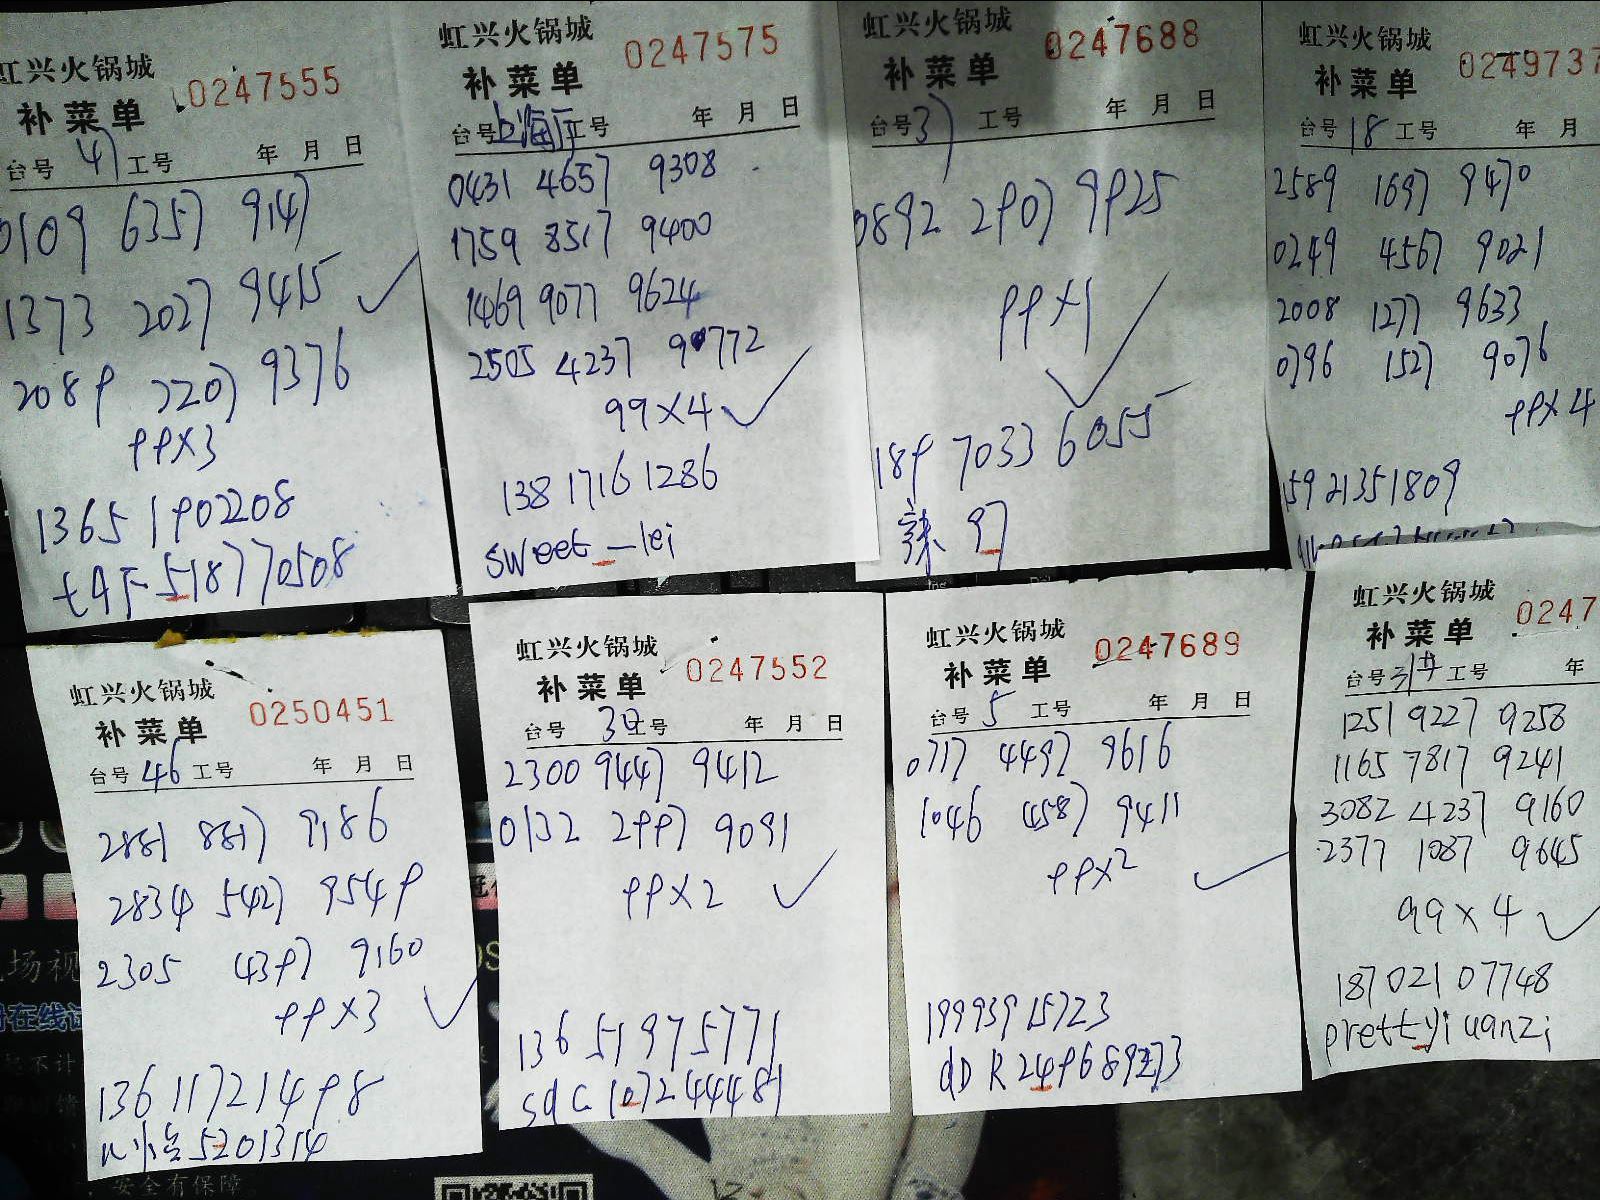 虹兴火锅城
补菜单 0247555
台号 47 工号 年 月 日
0109 6357 9147
1373 2027 9415
2089 2207 9376
99×3
13651902208
518770508
虹兴火锅城
补菜单 0247575
台号 上海厅 工号 年 月 日
0431 4657 9308
1759 8517 9400
1469 9077 9624
2505 4237 90772
99×4
138 1716 1286
sweet_lei
虹兴火锅城
补菜单 0247688
台号 37 工号 年 月 日
0892 2907 9925
99×1
189 7033 6055
辣 97
虹兴火锅城
补菜单 0249737
台号 18 工号 年 月
2589 1697 9470
0249 4567 9021
2008 1277 9633
0796 1527 9076
99×4
15921351809
虹兴火锅城
补菜单 0250451
台号 46 工号 年 月 日
2881 8817 9186
2834 5427 9549
2305 4397 9160
99×3
13611721498
5201314
虹兴火锅城
补菜单 0247552
台号 号 年 月 日
2300 9447 9412
0132 2997 9091
99×2
136 51975771
sdc1072444481
虹兴火锅城
补菜单 0247689
台号 5 工号 年 月 日
0717 4497 9616
1046 4587 9411
99×2
19993915723
虹兴火锅城
补菜单 0247
台号 工号 年
1251 9227 9258
1165 7817 9241
3082 4237 9160
2377 1087 9645
99×4
18702107748
prettyiuanzi
场视
在线
不计
安全有保障